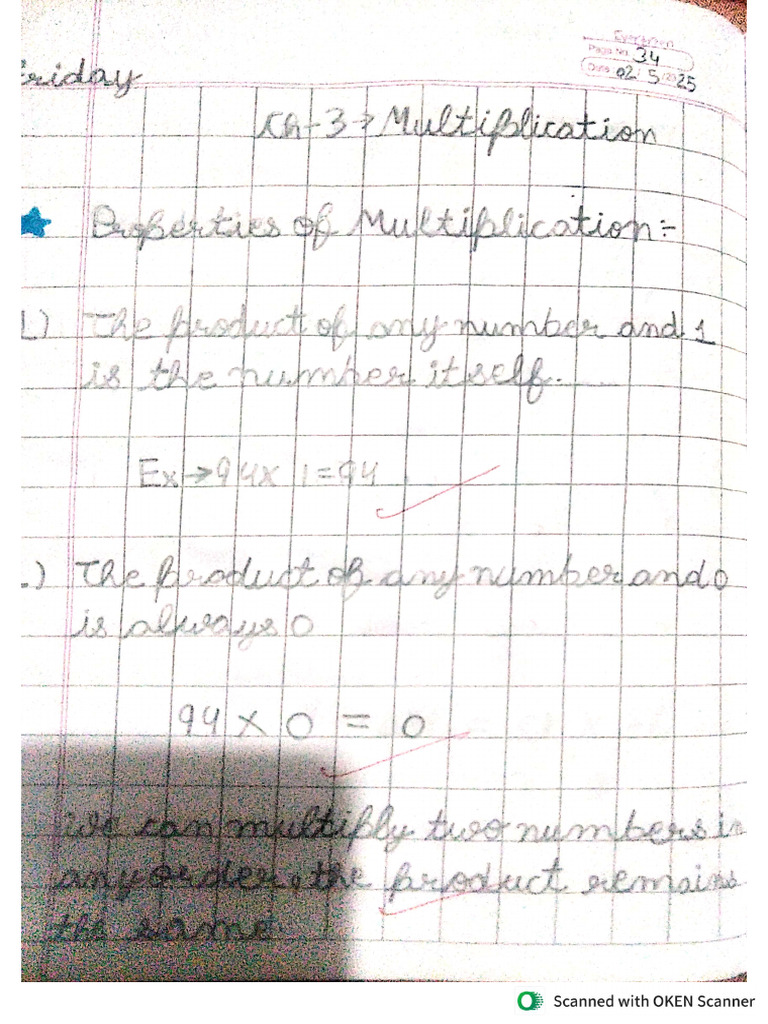 Evergreen
Page No. 34
Date: 02/5/2025
riday
Ch-3→Multiplication
Properties of Multiplication:-
1) The product of any number and 1
is the number itself.
Ex→94x 1=94
.) The product of any number and 0
is always 0
94 x 0 = 0
we can multiply two numbers in
any order, the product remains
the same.
Scanned with OKEN Scanner